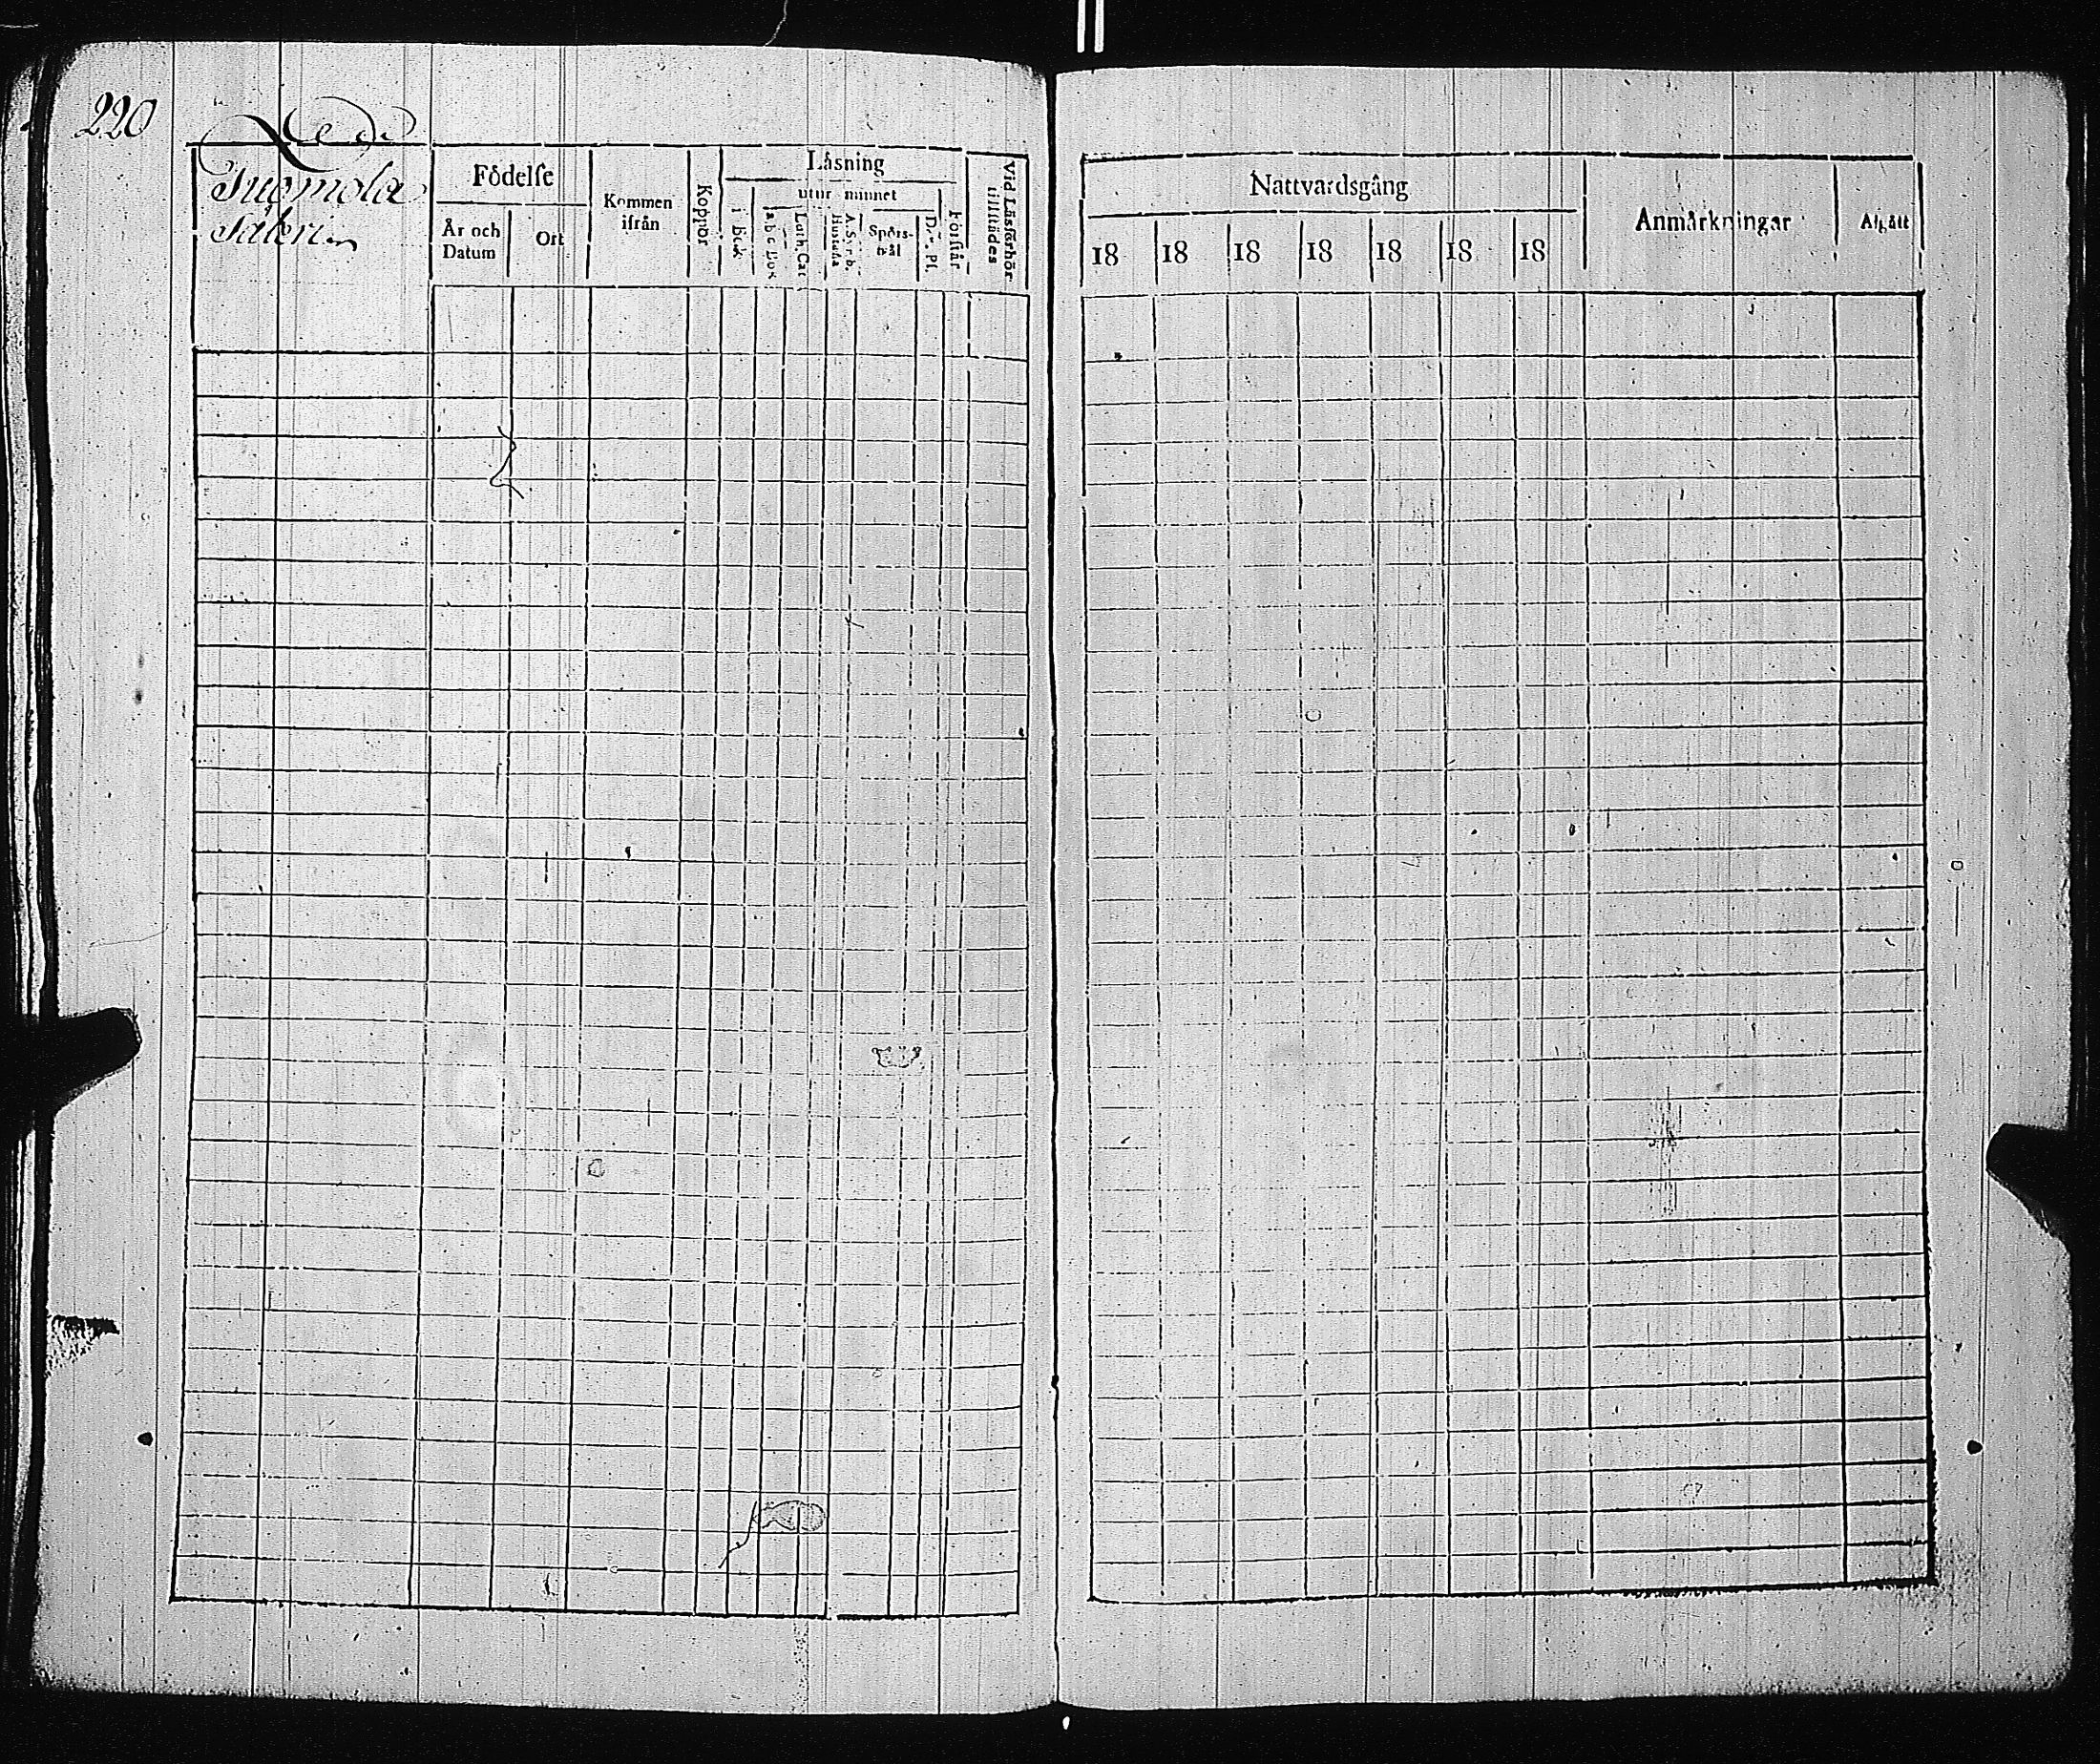 220
Suomela
Säteri
Födelse
År och Datum
Ort
Kommen ifrån
Koppor
Läsning
utur minnet
i Bok
a b c Bok
Luth. Cat
A. Symb.
Hustafla
Spörs-
mål
D:s Ps.
Förstår
Vid Läsförhör
tillstädes
Nattvardsgång
18 18 18 18 18 18 18
Anmärkningar
Afgått